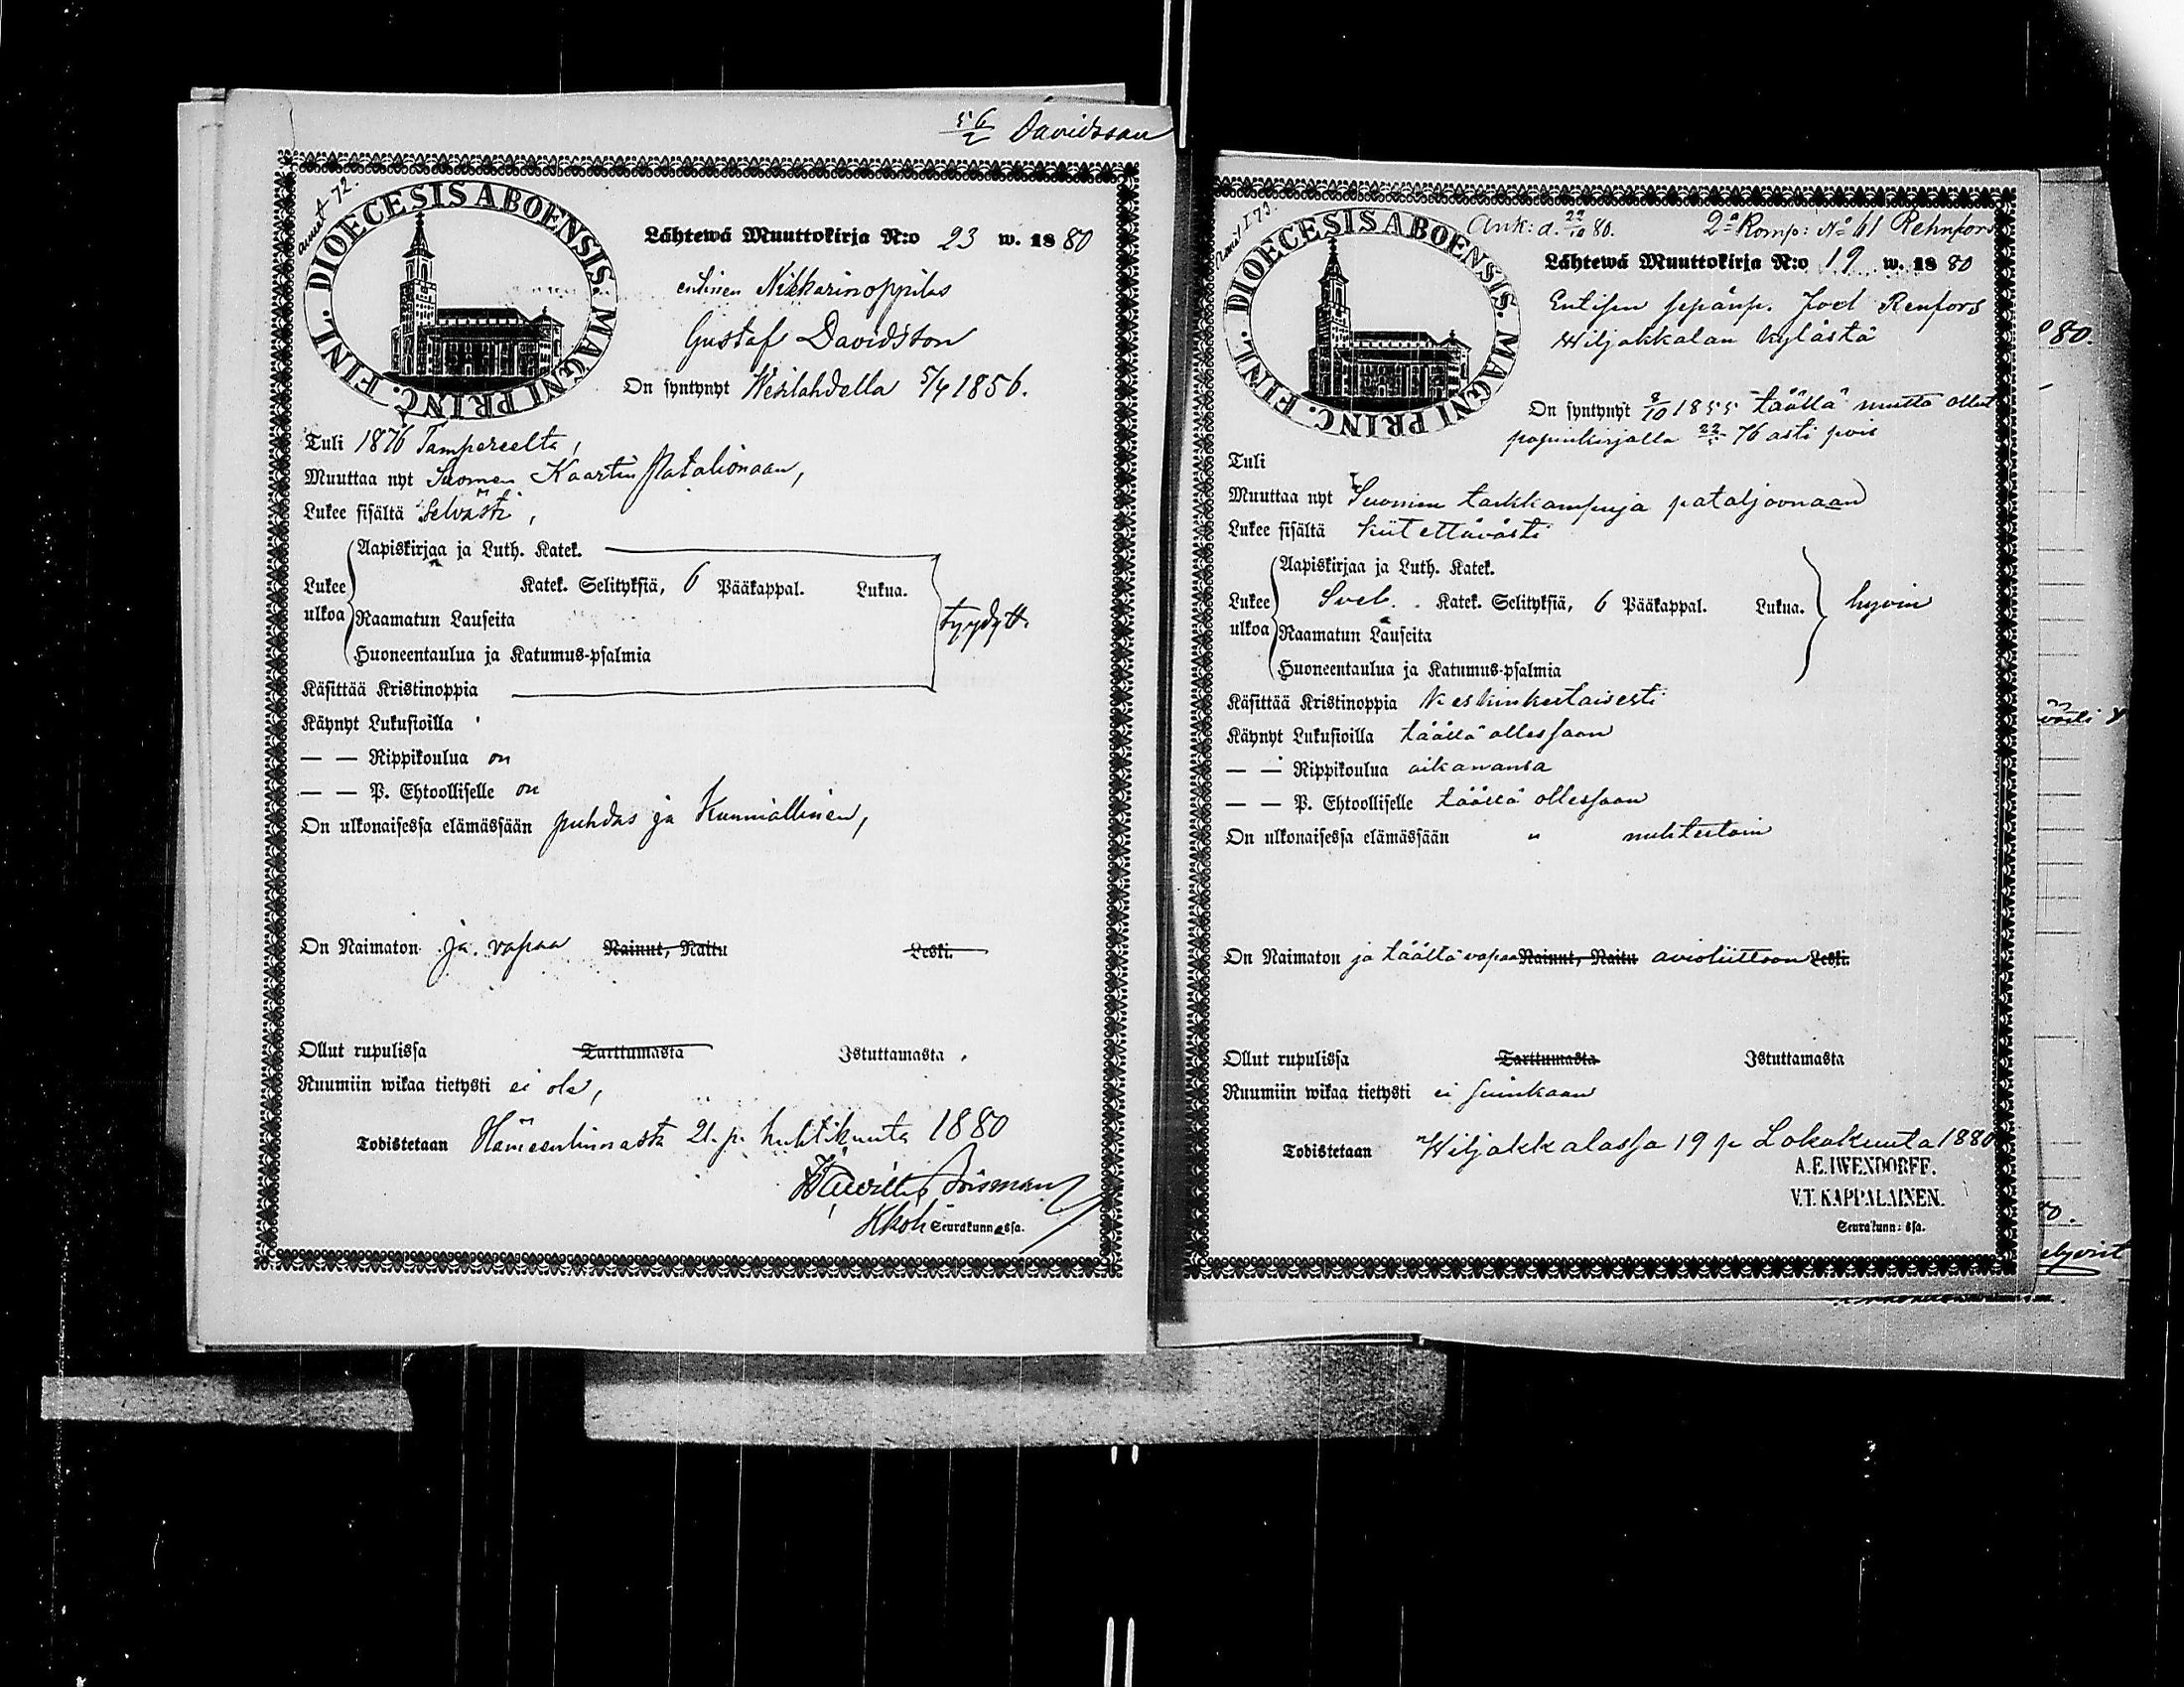 56/2 Davidsson
DIOECESIS ABOENSIS. MAGNI PRINC. FINL.
Lähtewä Muuttokirja N:o 23 w. 1880
entinen Nikkarinoppilas
Gustaf Davidsson
On syntynyt Wesilahdella 5/4 1856.
Tuli 1876 Tampereelta,
Muuttaa nyt Suomen Kaartin Pataljonaan,
Lukee sisältä Selvästi,
Aapiskirjaa ja Luth. Katek.
Lukee ulkoa
Katek. Selityksiä, 6 Pääkappal. Lukua.
Raamatun Lauseita
tyydytt.
Huoneentaulua ja Katumus-psalmia
Käsittää Kristinoppia
Käynyt Lukusioilla
— — Rippikoulua on
— — P. Ehtoolliselle on
On ulkonaisessa elämässään puhdas ja Kunniallinen,
On Naimaton ja vapaa Nainut, Naitu Leski.
Ollut rupulissa Tarttumasta Istuttamasta
Ruumiin wikaa tietysti ei ole,
Todistetaan Hämeenlinnasta 21. p. huhtikuuta 1880
Kkoh Seurakunnassa.
Ank: d. 22/10 80. 2a Komp: No 61 Rehnfors
DIOECESIS ABOENSIS. MAGNI PRINC. FINL.
Lähtewä Muuttokirja N:o 19 w. 1880
Entisen sepänp. Joel Renfors
Wiljakkalan kylästä
On syntynyt 8/10 1855 täällä mutta ollut
papinkirjalla 76 asti pois
Tuli
Muuttaa nyt Suomen tarkkampuja pataljoonaan
Lukee sisältä kiitettävästi
Aapiskirjaa ja Luth. Katek.
Lukee ulkoa
Sveb. Katek. Selityksiä, 6 Pääkappal. Lukua. hyvin
Raamatun Lauseita
Huoneentaulua ja Katumus-psalmia
Käsittää Kristinoppia Keskinkertaisesti
Käynyt Lukusioilla täällä ollessaan
— — Rippikoulua aikanansa
— — P. Ehtoolliselle täällä ollessaan
On ulkonaisessa elämässään " nuhteetoin
On Naimaton ja täältä vapaa Nainut, Naitu avioliittoon Leski.
Ollut rupulissa Tarttumasta Istuttamasta
Ruumiin wikaa tietysti ei suinkaan
Todistetaan Wiljakkalassa 19 p Lokakuuta 1880
A. E. IWENDORFF.
V.T. KAPPALAINEN.
Seurakunn: ssa.
80.